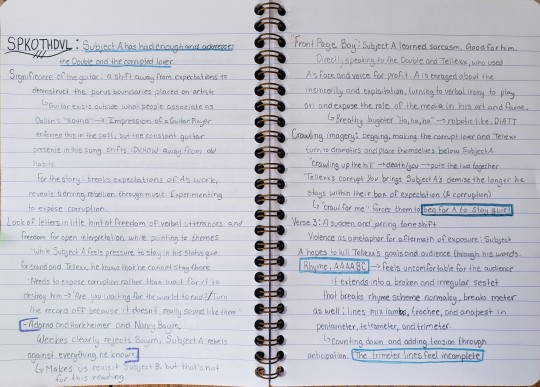 SPKOTHDVL: Subject A has had enough and addresses
the Double and the corrupted lover
Significance of the guitar: a shift away from expectations to
deconstruct the porus boundaries placed on artists
Guitar exists outside what people associate as
"sound" → Impression of a Guitar Player
enforces this in the past, but the constant guitar
present in this song shifts away from old
habits
For the story: breaks expectations of A's work,
reveals a driving rebellion through music. Experimenting
to expose corruption.
Lack of letters in title hint at freedom of verbal utterances and
freedom for open interpretation while pointing to themes
while Subject A feels pressure to stay in his status quo
for sound and Telexx, he knows that he cannot stay there
Needs to expose corruption rather than wait for it to
destroy him → "Are you waiting for the world to end? / Turn
the record off because it doesn't really sound like them"
- Adorno and Horkheimer and Nancy Baym
Weekes clearly rejects Baym, Subject A rebels
against everything he knows
Makes us revisit Subject B, but that's not
for this reading
"Front Page Boy": Subject A learned sarcasm. Good for him.
Directly speaking to the Double and Telexx, who used
A's face and voice for profit. A is enraged about the
insincerity and exploitation, turning to verbal irony to play
on and expose the role of the media in his art and fame.
Breathy laughter "Ha, ha, ha" → robotic like DIATT
Crawling imagery: begging, making the corrupt lover and Telexx
turn to dramatics and place themselves below Subject A
"Crawling up the hill" → death/you → puts the two together
Telexx's corrupt You brings Subject A's demise the longer he
stays within their box of expectation (& corruption)
"Crawl for me": forces them to beg for A to stay quiet
Verse 3: A sudden and jarring tone shift
Violence as a metaphor for aftermath of exposure: Subject
A hopes to kill Telexx's goals and audience through his words.
Rhyme, AAAABC → feels uncomfortable for the audience
it extends into a broken and irregular sestet
that breaks rhyme scheme normalcy, breaks meter
as well: lines mix iamb, trochee, and anapest in
pentameter, tetrameter, and trimeter.
Counting down and adding tension through
anticipation. The trimeter lines feel incomplete